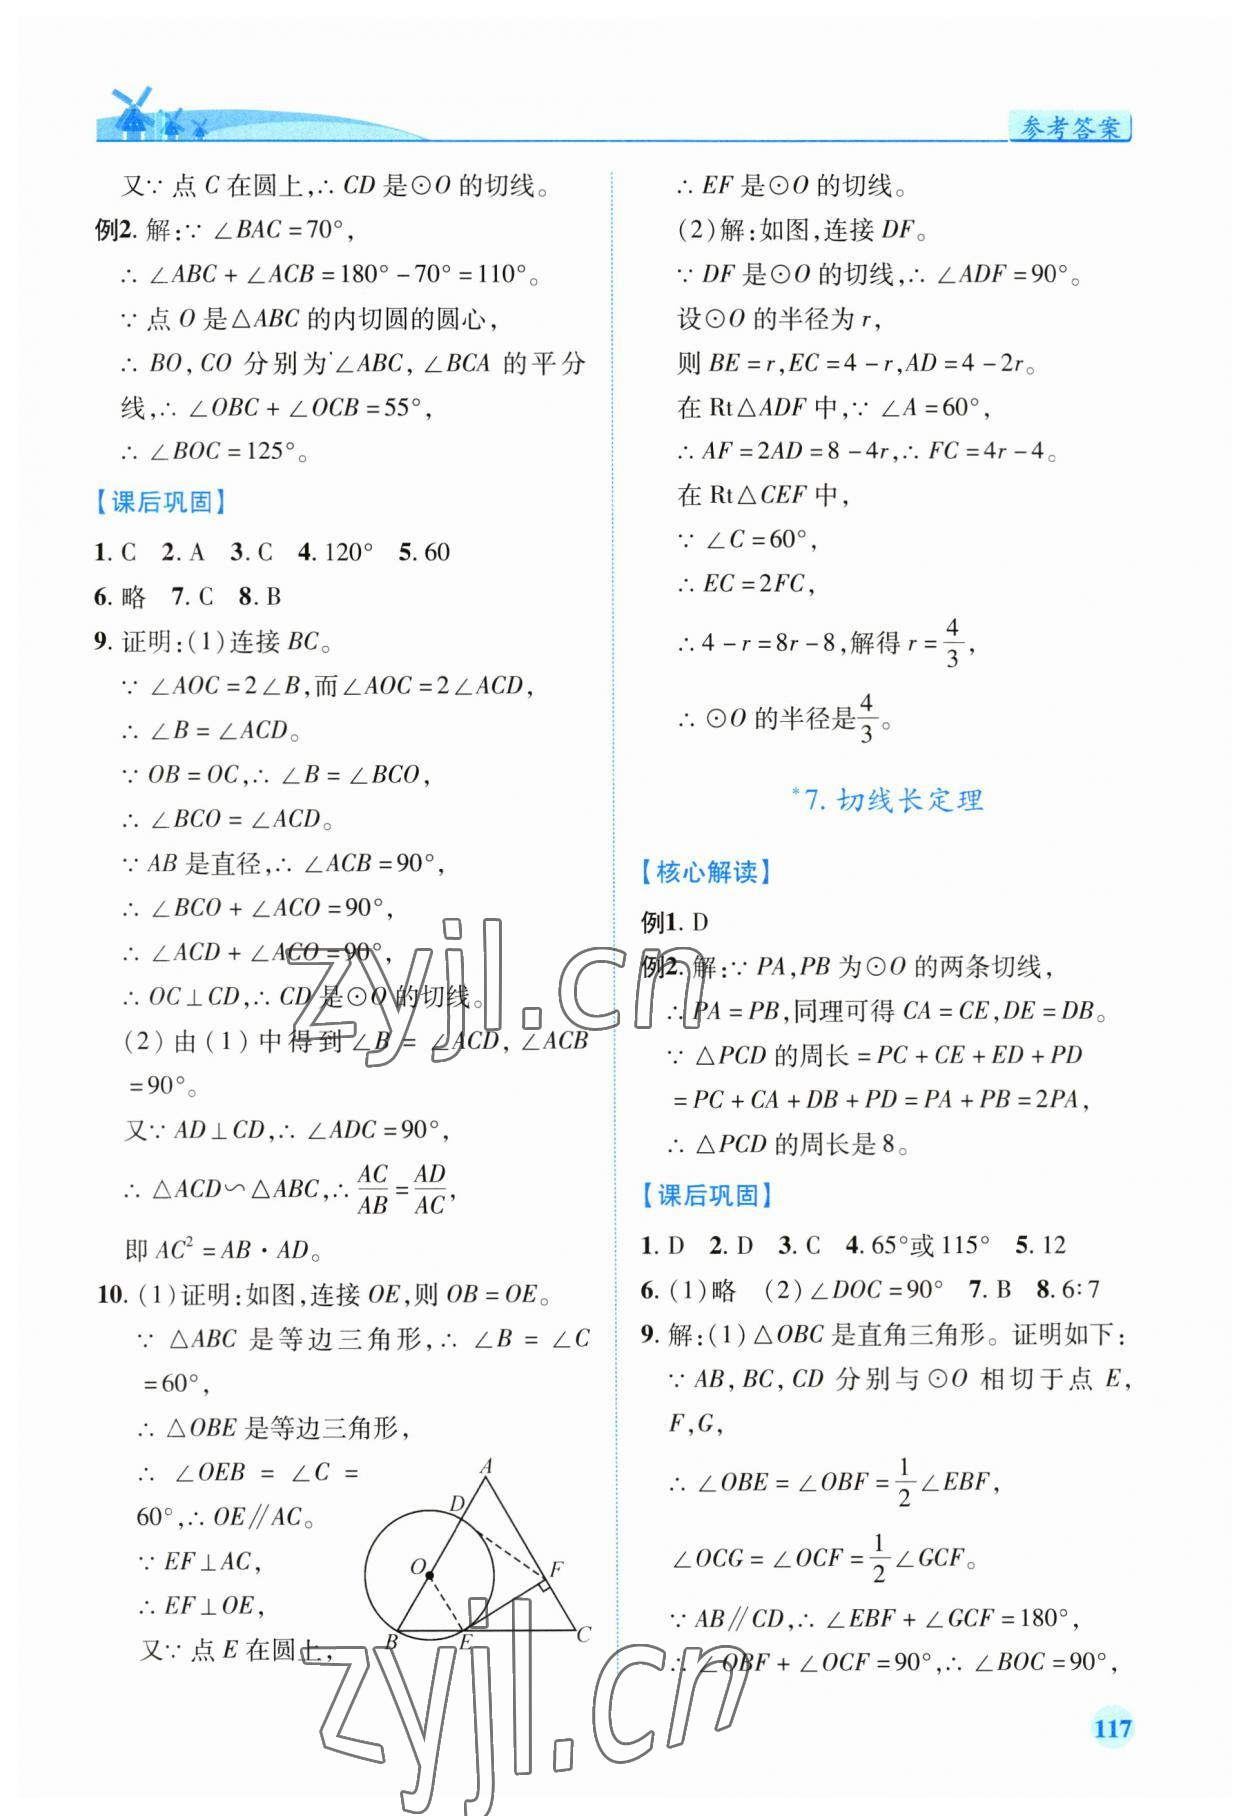 参考答案
又∵ 点 C 在圆上,∴ CD 是⊙O 的切线。
例2. 解:∵ ∠BAC=70°,
∴ ∠ABC+∠ACB=180°-70°=110°。
∵ 点 O 是△ABC 的内切圆的圆心,
∴ BO, CO 分别为∠ABC, ∠BCA 的平分
线,∴ ∠OBC+∠OCB=55°,
∴ ∠BOC=125°。
【课后巩固】
1. C 2. A 3. C 4. 120° 5. 60
6. 略 7. C 8. B
9. 证明:(1)连接 BC。
∵ ∠AOC=2∠B,而∠AOC=2∠ACD,
∴ ∠B=∠ACD。
∵ OB=OC,∴ ∠B=∠BCO,
∴ ∠BCO=∠ACD。
∵ AB 是直径,∴ ∠ACB=90°,
∴ ∠BCO+∠ACO=90°,
∴ ∠ACD+∠ACO=90°,
∴ OC⊥CD,∴ CD 是⊙O 的切线。
(2)由(1)中得到∠B=∠ACD, ∠ACB
=90°。
又∵ AD⊥CD,∴ ∠ADC=90°,
∴ △ACD∽△ABC,∴ AC/AB=AD/AC,
即 AC²=AB·AD。
10. (1)证明:如图,连接 OE,则 OB=OE。
∵ △ABC 是等边三角形,∴ ∠B=∠C
=60°,
∴ △OBE 是等边三角形,
∴ ∠OEB=∠C=
60°,∴ OE∥AC。
∵ EF⊥AC,
∴ EF⊥OE,
又∵ 点 E 在圆上,
A
D
O
F
B
E
C
∴ EF 是⊙O 的切线。
(2)解:如图,连接 DF。
∵ DF 是⊙O 的切线,∴ ∠ADF=90°。
设⊙O 的半径为 r,
则 BE=r,EC=4-r,AD=4-2r。
在 Rt△ADF 中,∵ ∠A=60°,
∴ AF=2AD=8-4r,∴ FC=4r-4。
在 Rt△CEF 中,
∵ ∠C=60°,
∴ EC=2FC,
∴ 4-r=8r-8,解得 r=4/3,
∴ ⊙O 的半径是4/3。
*7. 切线长定理
【核心解读】
例1. D
例2. 解:∵ PA,PB 为⊙O 的两条切线,
∴ PA=PB,同理可得 CA=CE,DE=DB。
∵ △PCD 的周长=PC+CE+ED+PD
=PC+CA+DB+PD=PA+PB=2PA,
∴ △PCD 的周长是 8。
【课后巩固】
1. D 2. D 3. C 4. 65°或115° 5. 12
6. (1)略 (2)∠DOC=90° 7. B 8. 6∶7
9. 解:(1)△OBC 是直角三角形。证明如下:
∵ AB, BC, CD 分别与⊙O 相切于点 E,
F,G,
∴ ∠OBE=∠OBF=1/2∠EBF,
∠OCG=∠OCF=1/2∠GCF。
∵ AB∥CD,∴ ∠EBF+∠GCF=180°,
∴ ∠OBF+∠OCF=90°,∴ ∠BOC=90°,
zyjl.cn
zyjl.cn
117